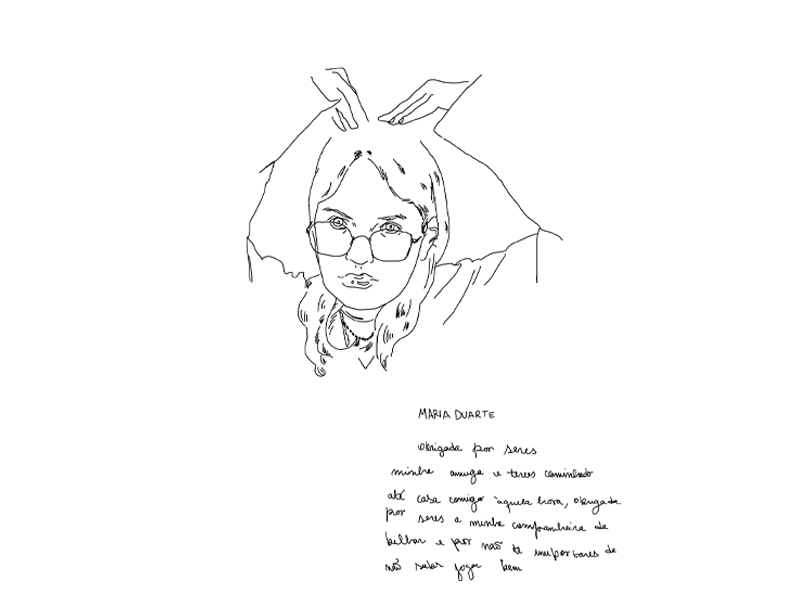 MARIA DUARTE
Obrigada por seres
minha amiga e teres caminhado
até casa comigo àquela hora, obrigada
por seres a minha companheira de
bilhar e por não te importares de
não saber jogar bem